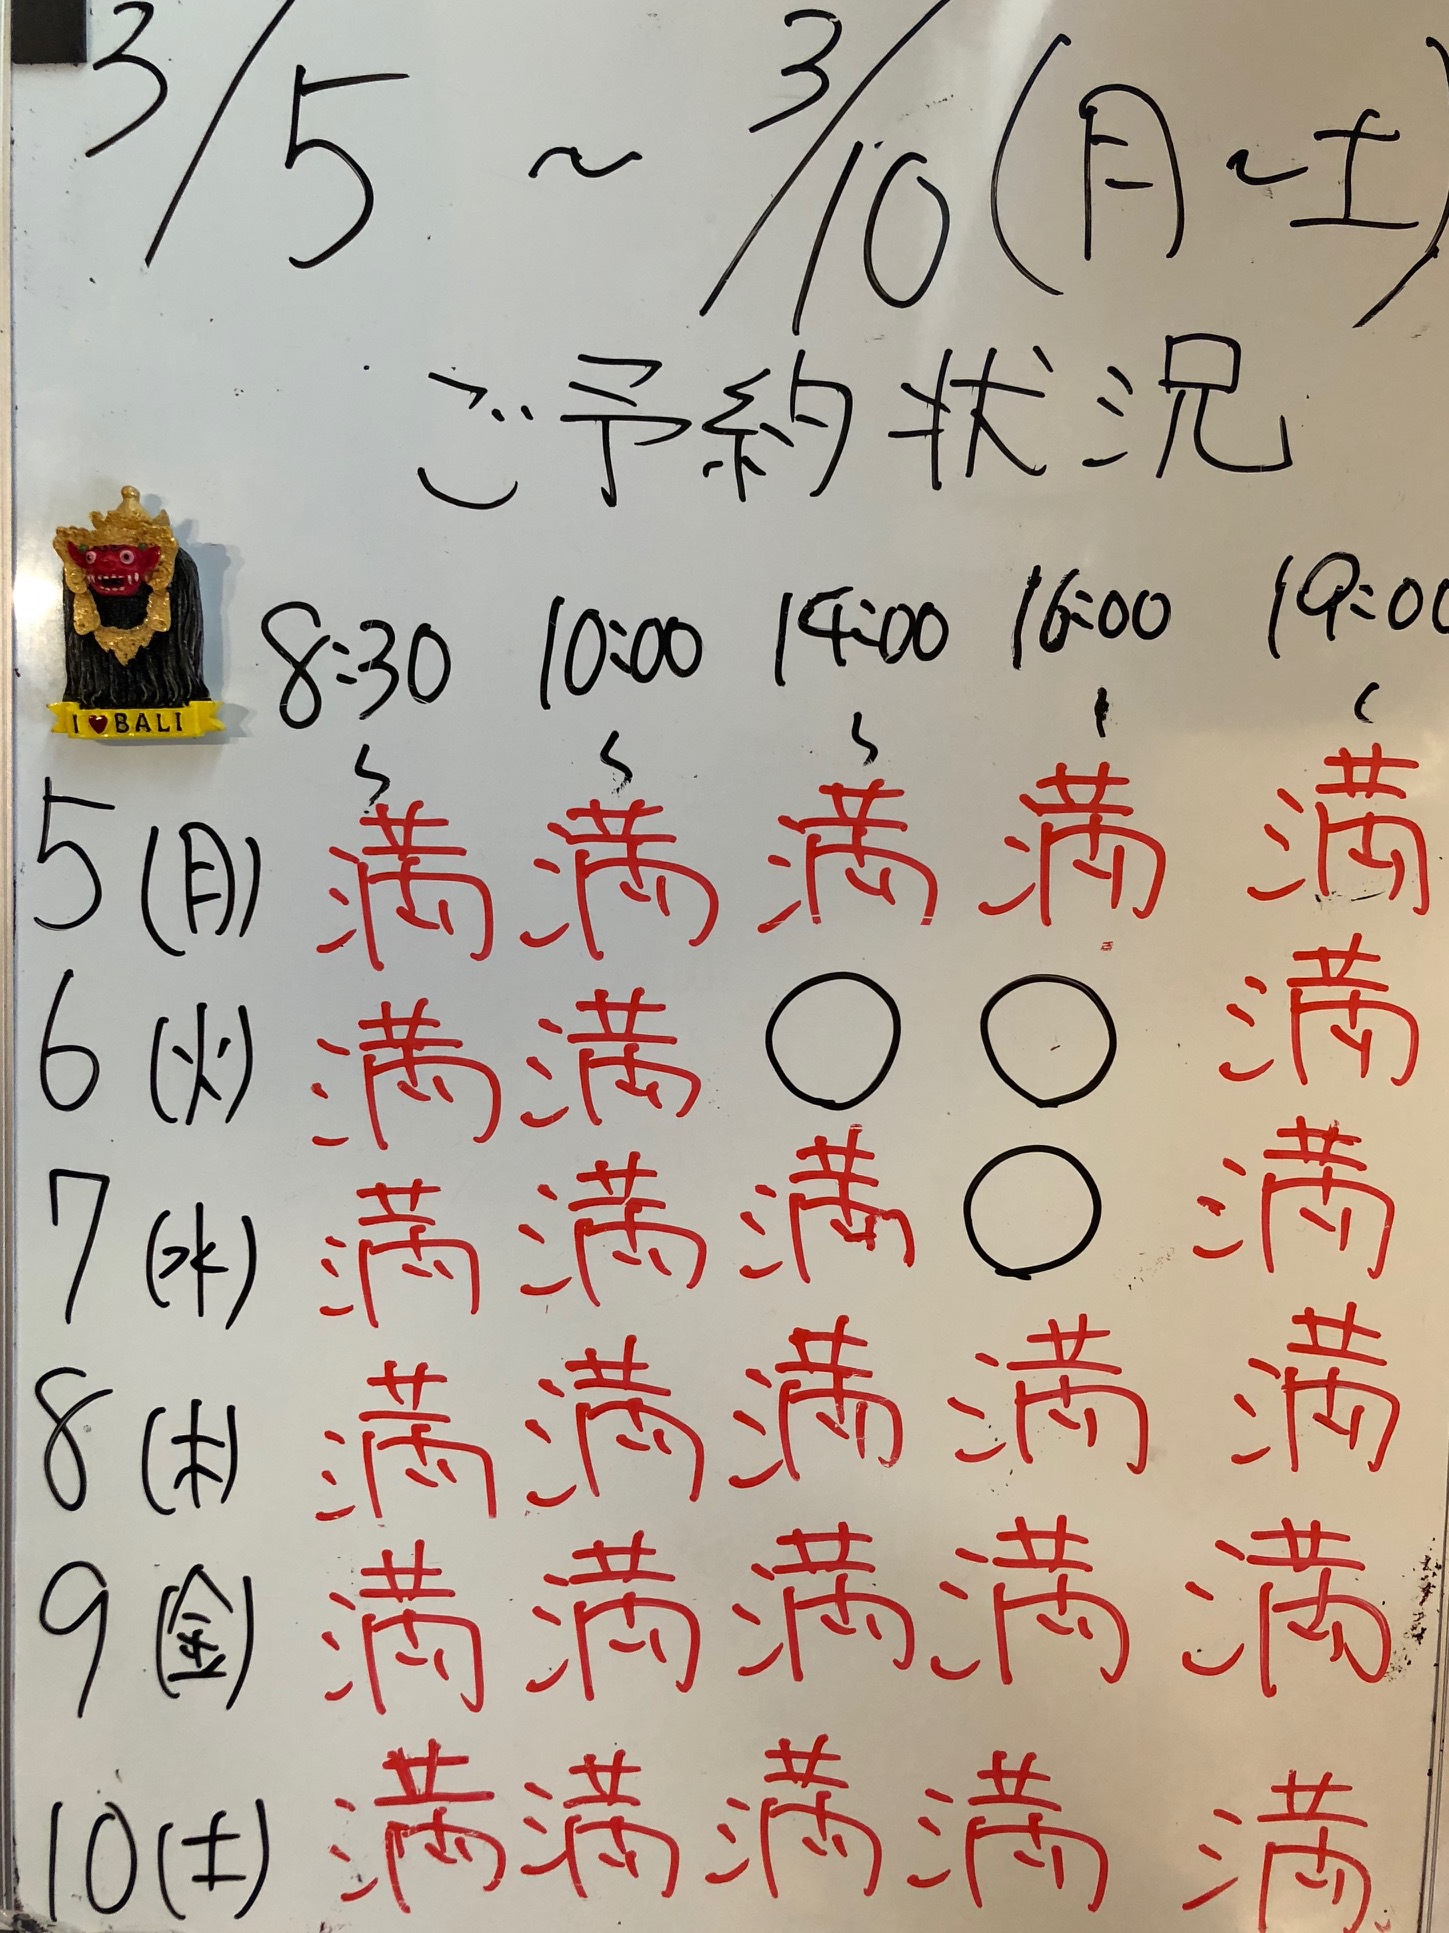 3/5 ～ 3/10 (月～土)
ご予約状況
8:30 10:00 14:00 16:00 19:00
I ♥ BALI
〜 〜 〜 〜 〜
5 (月) 満 満 満 満 満
6 (火) 満 満 ○ ○ 満
7 (水) 満 満 満 ○ 満
8 (木) 満 満 満 満 満
9 (金) 満 満 満 満 満
10 (土) 満 満 満 満 満